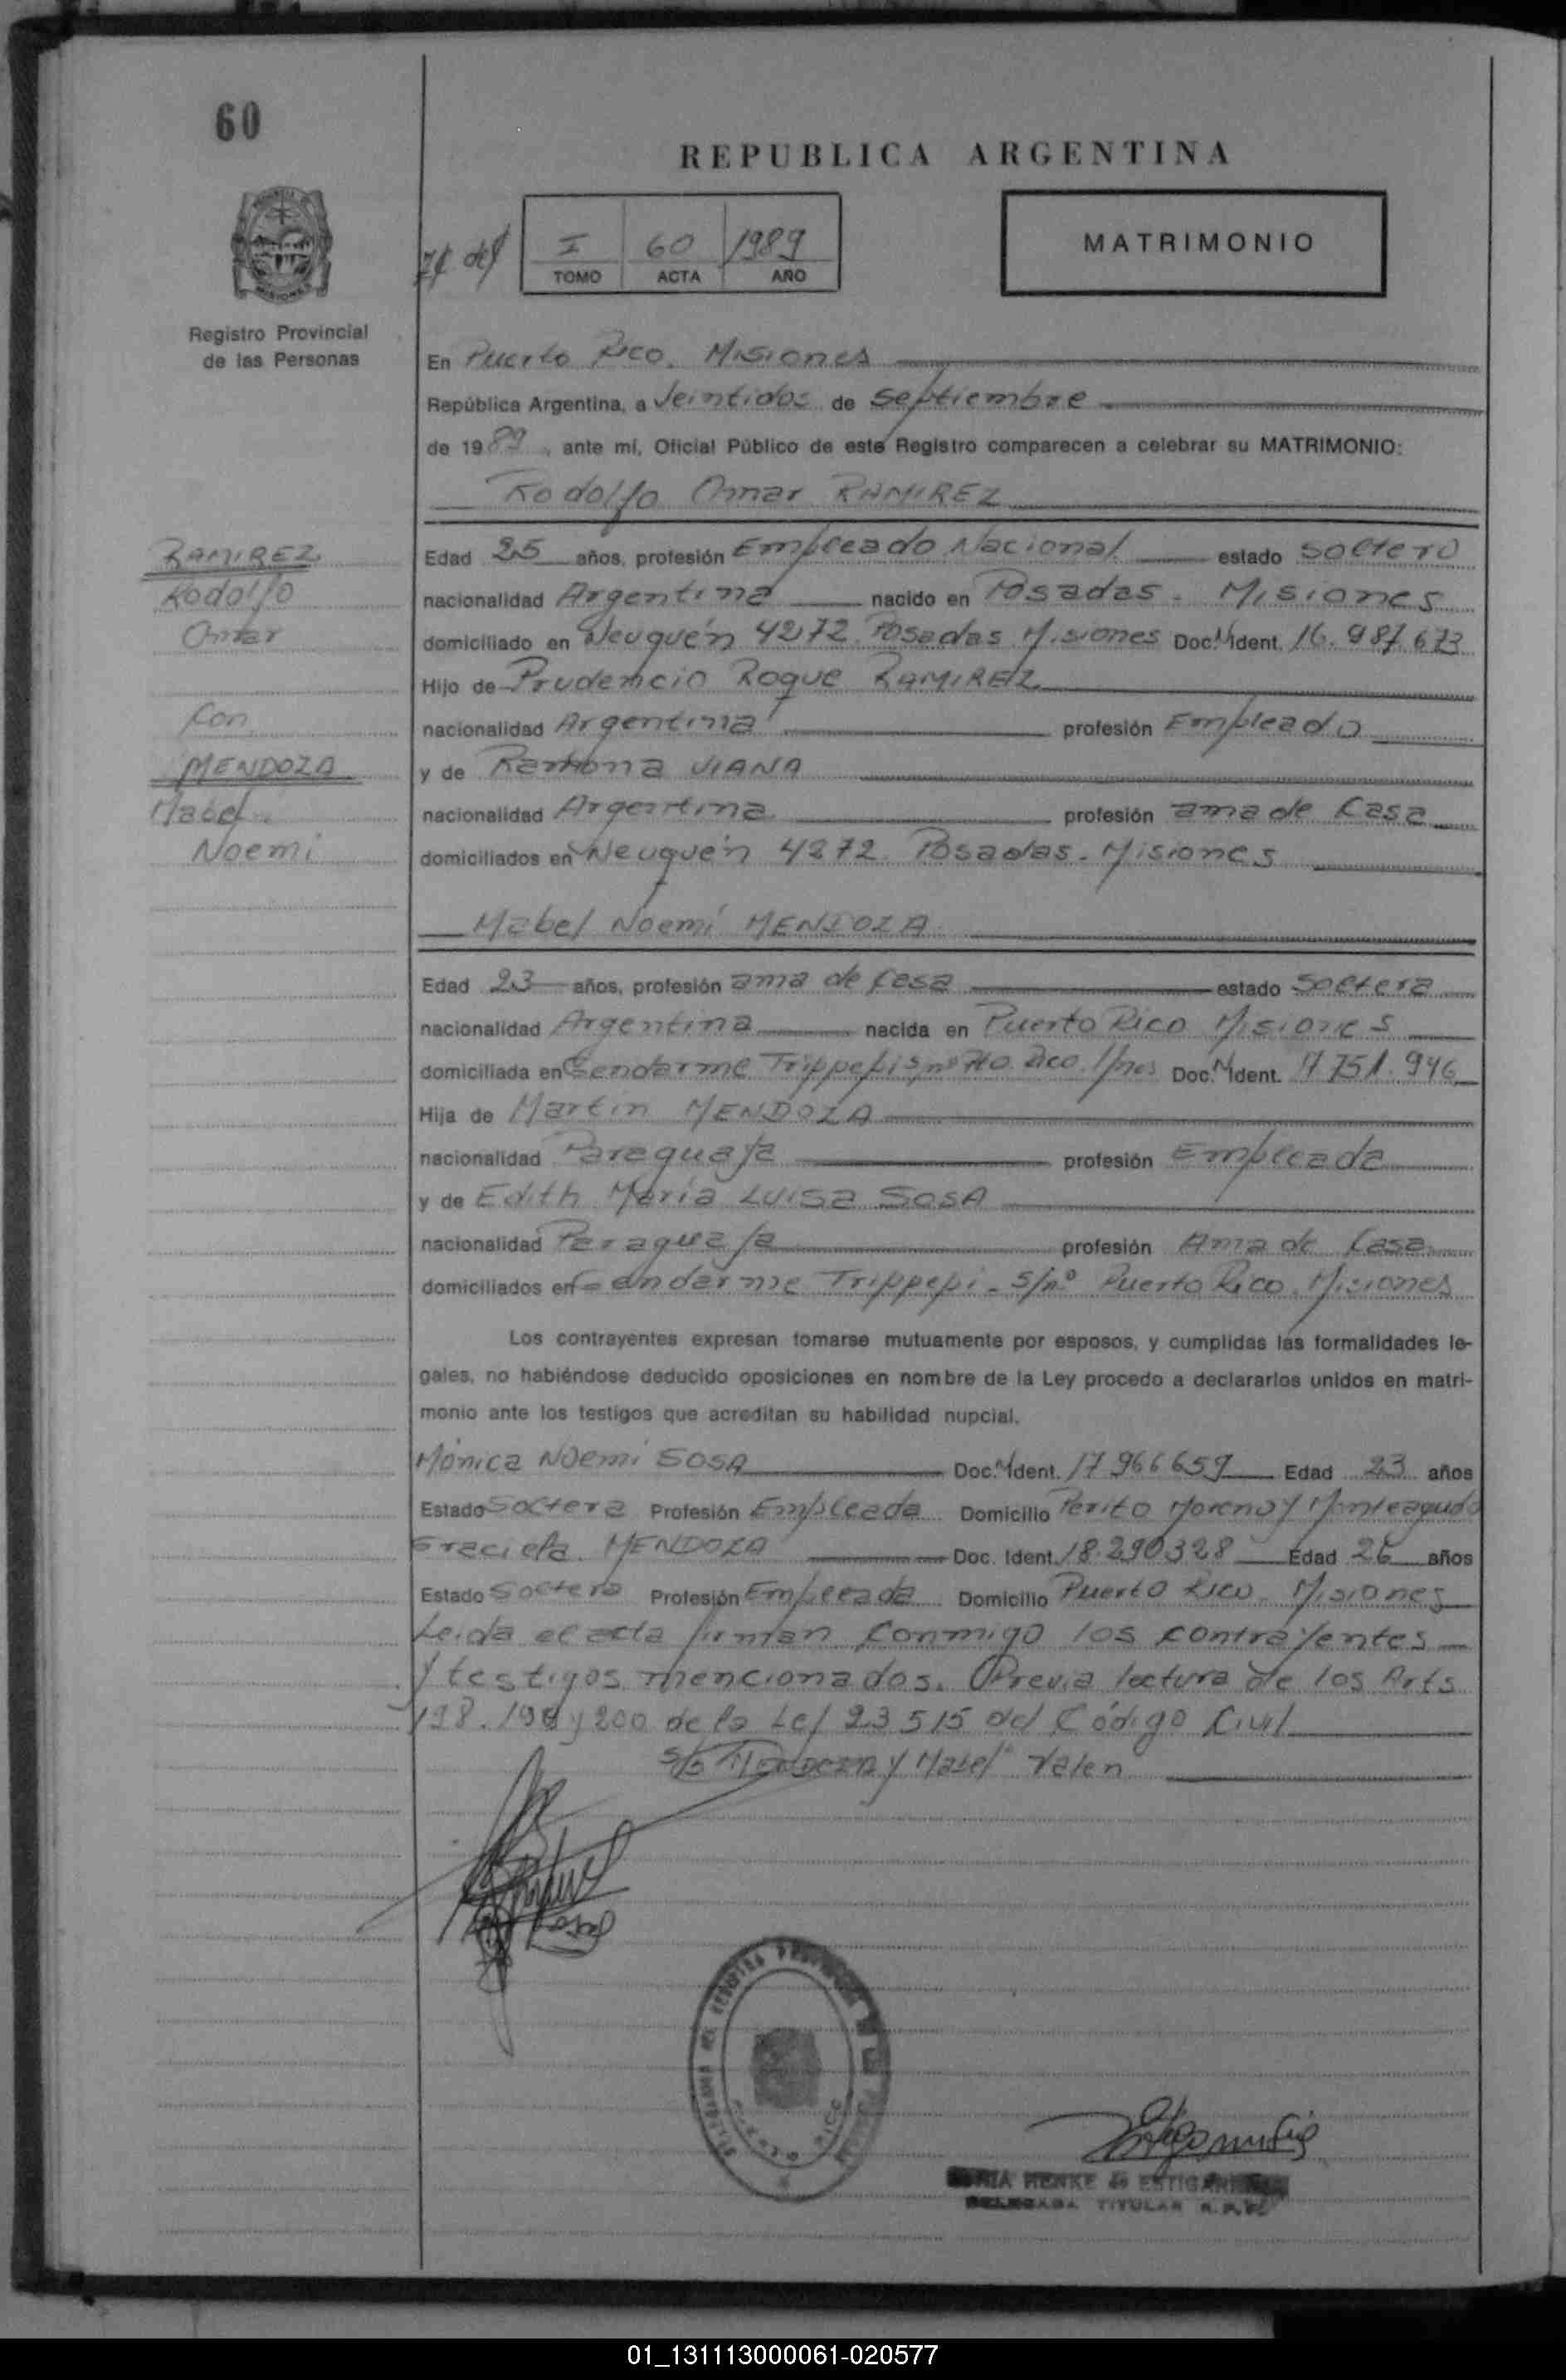 60
REPUBLICA ARGENTINA
I 60 1989
TOMO ACTA AÑO
MATRIMONIO
Registro Provincial
de las Personas
En Puerto Rico. Misiones
República Argentina, a Veintidos de septiembre
de 1989, ante mí, Oficial Público de este Registro comparecen a celebrar su MATRIMONIO:
Rodolfo Omar RAMIREZ
RAMIREZ
Rodolfo
Omar
Con
MENDOZA
Mabel
Noemi
Edad 25 años, profesión Empleado Nacional estado soltero
nacionalidad Argentina nacido en Posadas. Misiones
domiciliado en Neuquén 4272 Posadas Misiones Doc. N. Ident. 16.987.673
Hijo de Prudencio Roque RAMIREZ
nacionalidad Argentina profesión Empleado
y de Ramona VIANA
nacionalidad Argentina profesión ama de Casa
domiciliados en Neuquén 4272. Posadas. Misiones
Mabel Noemí MENDOZA
Edad 23 años, profesión ama de Casa estado soltera
nacionalidad Argentina nacida en Puerto Rico Misiones
domiciliada en Gendarme Trippepi s/nº Pto. Rico. Mnes Doc. N. Ident. 17751.946
Hija de Martín MENDOZA
nacionalidad Paraguaya profesión Empleada
y de Edith María LUISA SOSA
nacionalidad Paraguaya profesión Ama de Casa
domiciliados en Gendarme Trippepi - s/nº Puerto Rico. Misiones
Los contrayentes expresan tomarse mutuamente por esposos, y cumplidas las formalidades le-
gales, no habiéndose deducido oposiciones en nombre de la Ley procedo a declararlos unidos en matri-
monio ante los testigos que acreditan su habilidad nupcial.
Mónica Noemi SOSA Doc. N. Ident. 17966659 Edad 23 años
Estado Soltera Profesión Empleada Domicilio Perito Moreno y Monteagudo
Graciela MENDOZA Doc. Ident. 18.290328 Edad 26 años
Estado Soltera Profesión Empleada Domicilio Puerto Rico. Misiones
Leida el acta firman Conmigo los contrayentes
y testigos mencionados. Previa lectura de los Arts
198. 199 y 200 de la Ley 23515 del Código Civil
s/b MENDOZA y Mabel Valen
MARIA HENKE de ESTIGARRIBIA
DELEGADA TITULAR R.P.P.
01_131113000061-020577